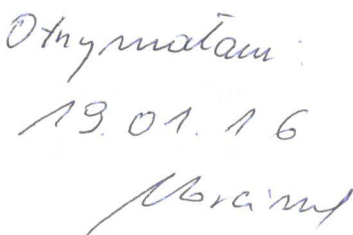 Otrzymałam:
19.01.16